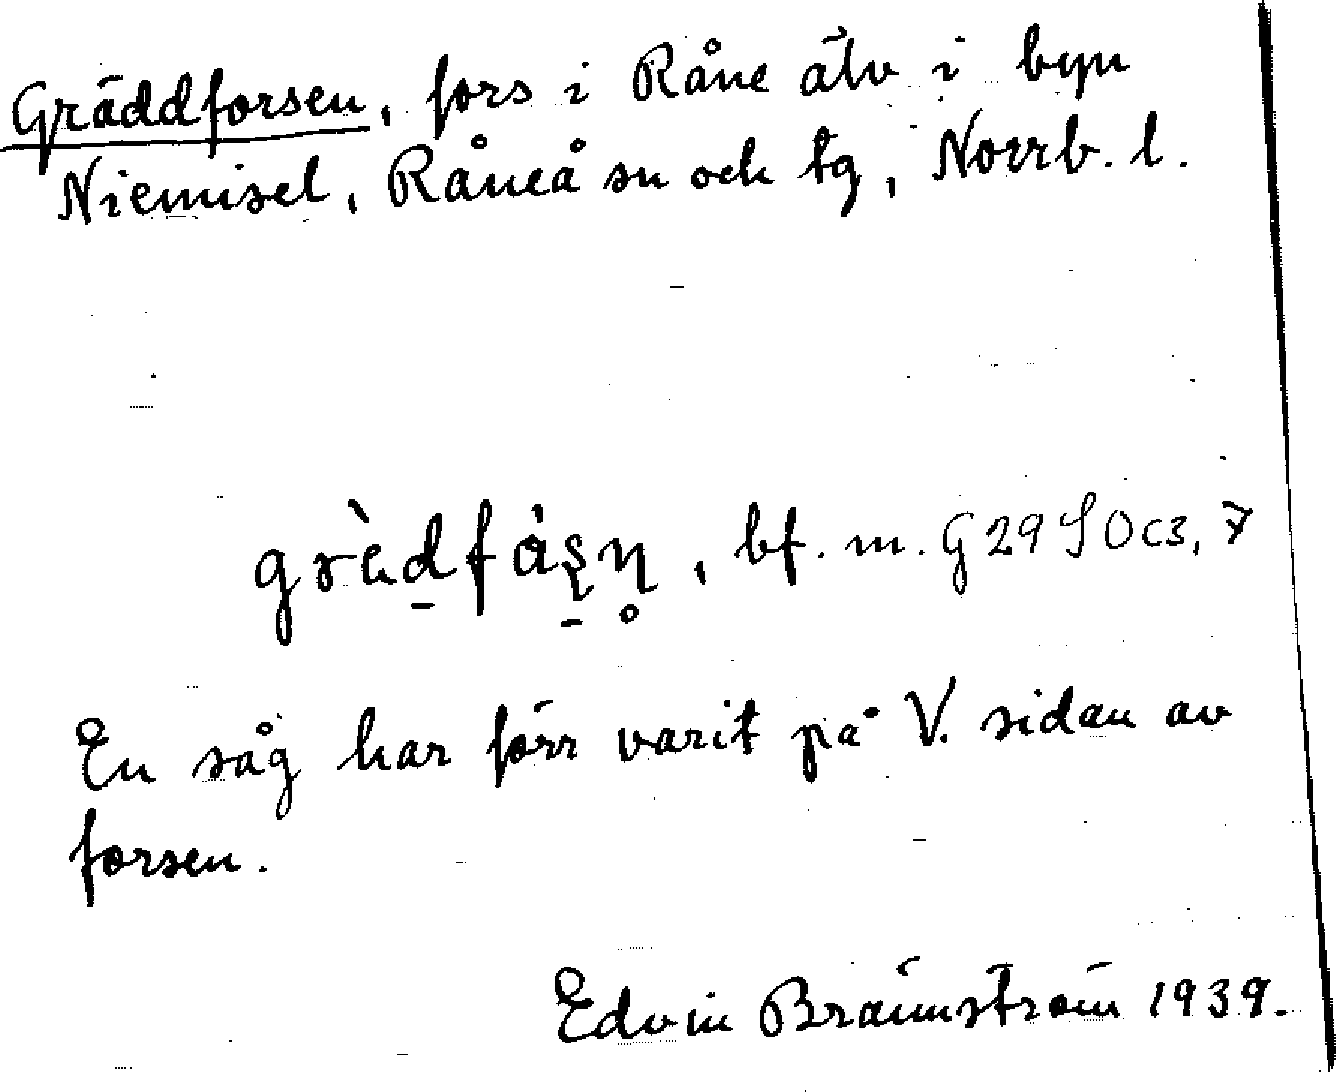 Gräddforsen, fors i Råne älv i byn
Niemisel, Råneå sn och tg, Norrb. l.
bf. m. G 29 S O c3, 7
En såg har förr varit på V. sidan av
forsen.
Edvin Brännström 1939.